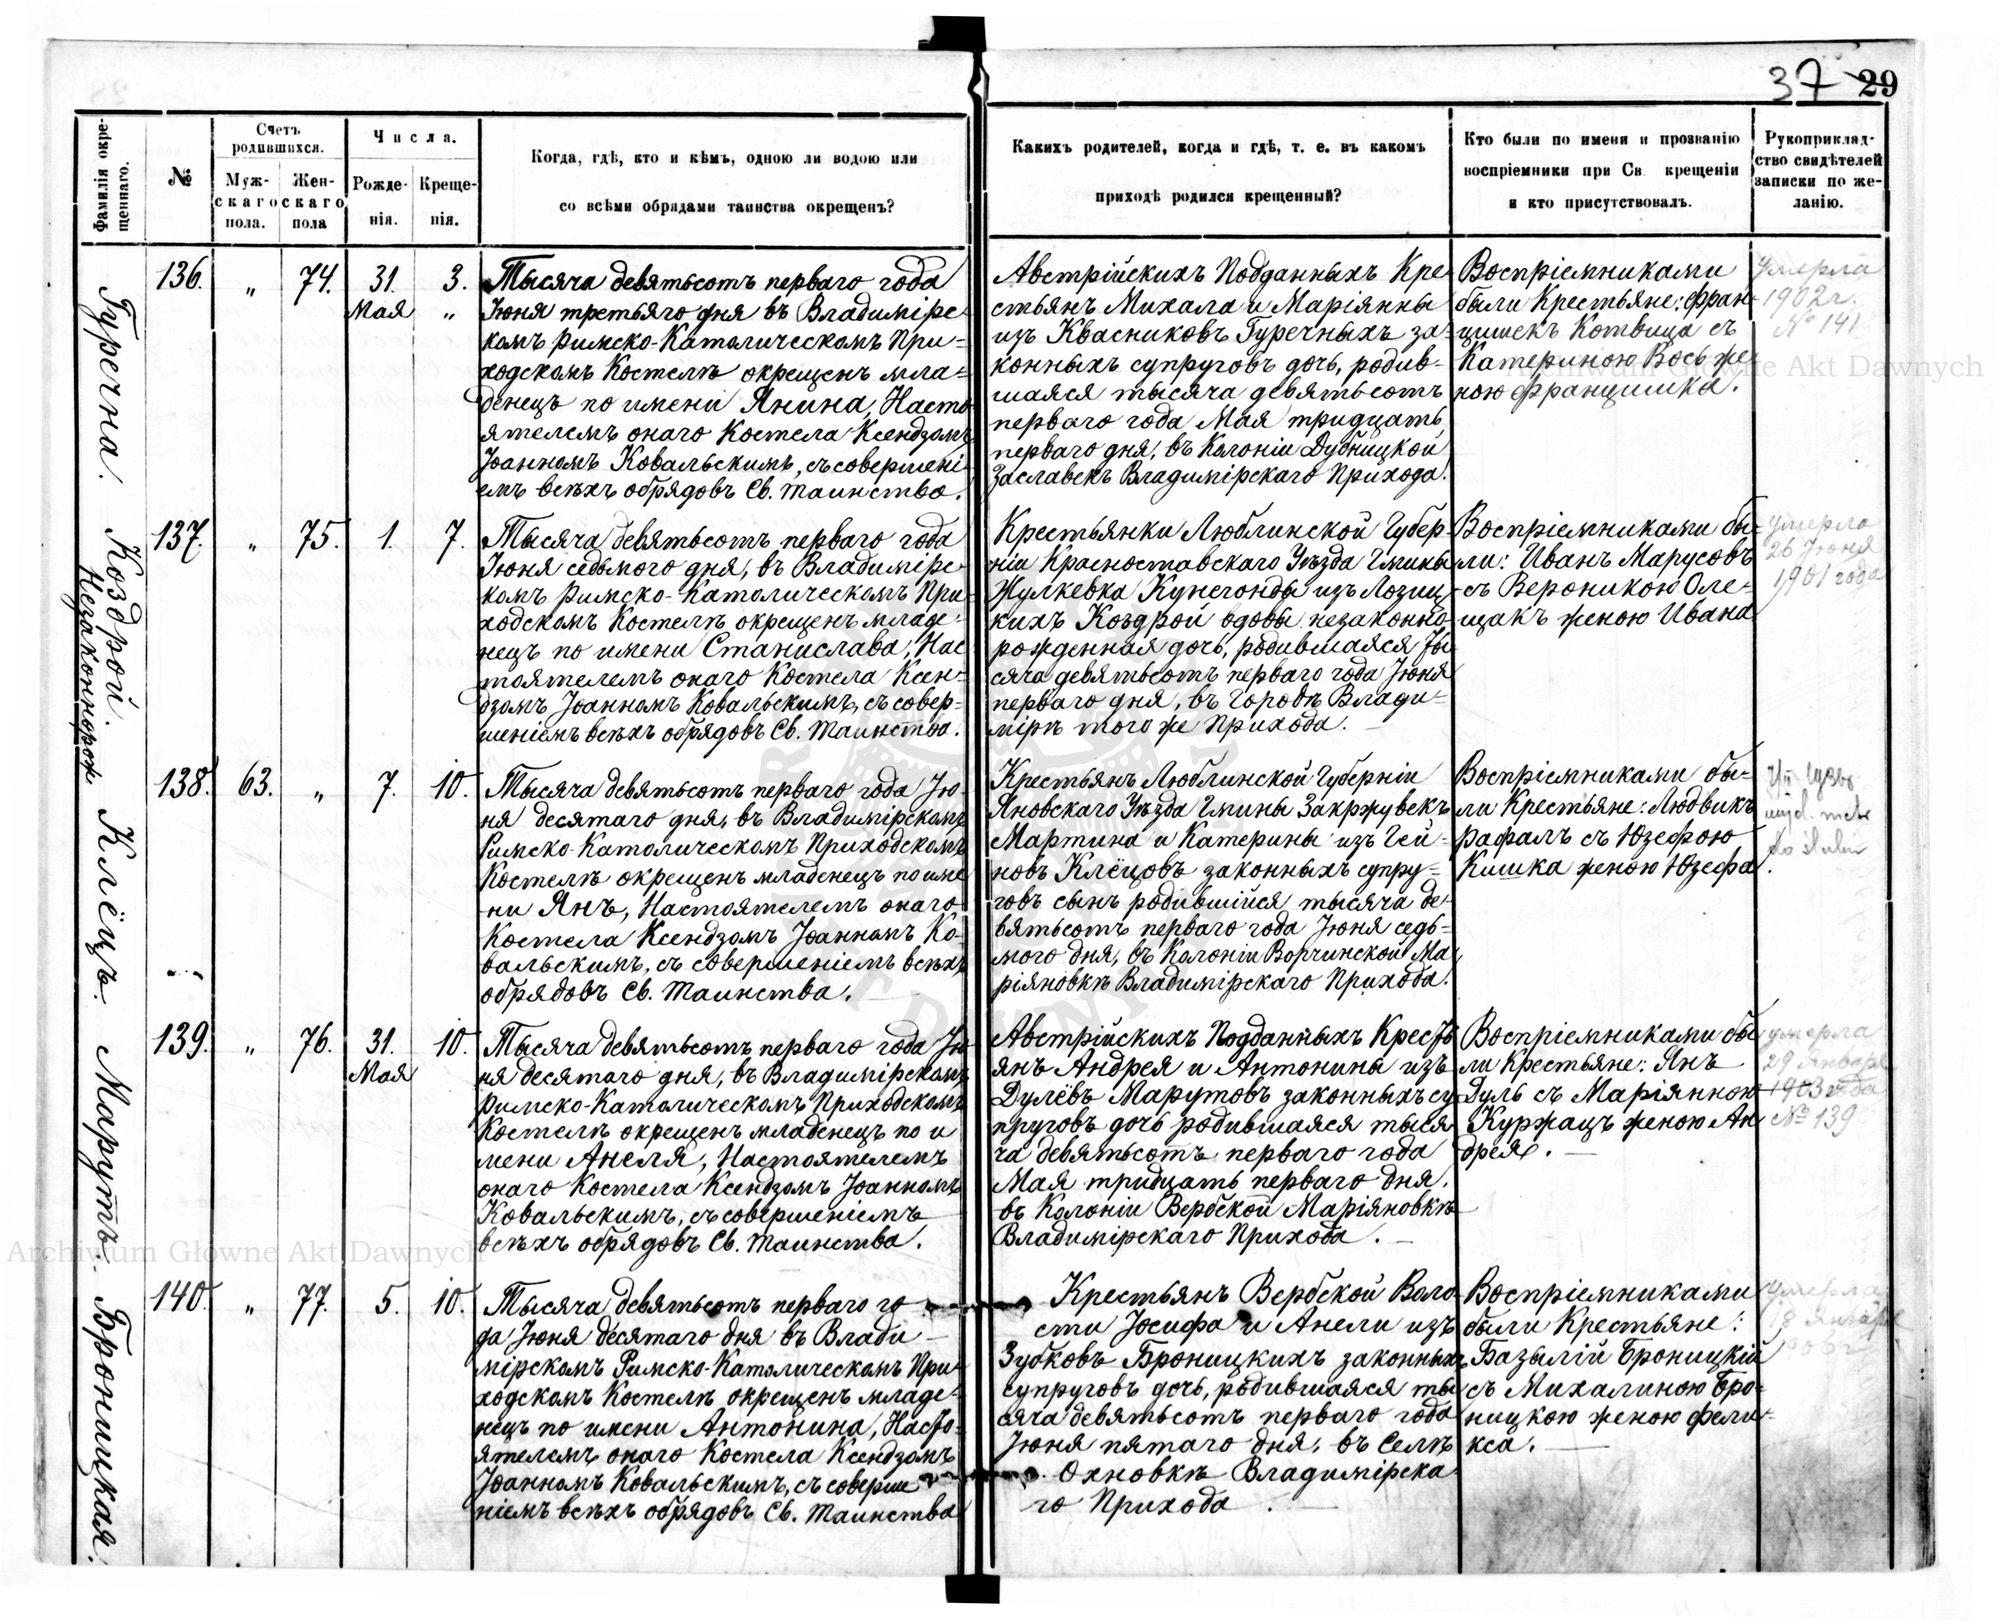 37 29
Фамилія окре-
щеннаго.
№
Счетъ
родившихся.
Муж-
скаго
пола.
Жен-
скаго
пола
Числа.
Рожде-
нія.
Креще-
нія.
Когда, гдѣ, кто и кѣмъ, одною ли водою или
со всѣми обрядами таинства окрещенъ?
Какихъ родителей, когда и гдѣ, т. е. въ какомъ
приходѣ родился крещенный?
Кто были по имени и прозванію
воспріемники при Св. крещеніи
и кто присутствовалъ.
Рукоприклад-
ство свидѣтелей
записки по же-
ланію.
Гуречна.
136. " 74. 31. 3.
Мая "
Тысяча девятьсотъ перваго года
Іюня третьяго дня въ Владимірс-
комъ Римско-Католическомъ При-
ходскомъ Костелѣ окрещенъ мла-
денецъ по имени Янина, Насто-
ятелемъ онаго Костела Ксендзомъ
Іоанномъ Ковальскимъ, съ совершені-
емъ всѣхъ обрядовъ Св. Таинства.
Австрійскихъ Подданныхъ Кре-
стьянъ Михала и Маріянны
изъ Квасниковъ Гуречныхъ за-
конныхъ супруговъ дочь, родив-
шаяся тысяча девятьсотъ
перваго года Мая тридцать
перваго дня, въ Колоніи Дубницкой
Заславекъ Владимірскаго Прихода.
Воспріемниками
были Крестьяне: Фран-
цишекъ Котвица съ
Катериною Вось же-
ною Францишка.
Умерла
1902 г.
№ 141
Коздрой.
Незаконнорож.
137. " 75. 1. 7.
Тысяча девятьсотъ перваго года
Іюня седьмого дня, въ Владимірс-
комъ Римско-Католическомъ При-
ходскомъ Костелѣ окрещенъ младе-
нецъ по имени Станислава, Нас-
тоятелемъ онаго Костела Ксен-
дзомъ Іоанномъ Ковальскимъ, съ совер-
шеніемъ всѣхъ обрядовъ Св. Таинства.
Крестьянки Люблинской Губер-
ніи Красноставскаго Уѣзда Гмины
Жулкевка Кунегонды изъ Лозиц-
кихъ Коздрой вдовы незаконно
рожденная дочь, родившаяся ты-
сяча девятьсотъ перваго года Іюня
перваго дня, въ Городѣ Влади-
мірѣ того же Прихода.
Воспріемниками бы-
ли: Иванъ Марусовъ
съ Вероникою Оле-
щакъ женою Ивана
Умерла
26 Іюня
1901 года
Клёцъ.
138. 63. " 7. 10.
Тысяча девятьсотъ перваго года Ію-
ня десятаго дня, въ Владимірскомъ
Римско-Католическомъ Приходскомъ
Костелѣ окрещенъ младенецъ по име
ни Янъ, Настоятелемъ онаго
Костела Ксендзомъ Іоанномъ Ко-
вальскимъ, съ совершеніемъ всѣхъ
обрядовъ Св. Таинства.
Крестьянъ Люблинской Губерніи
Яновскаго Уѣзда Гмины Закржувекъ
Мартина и Катерины изъ Гей-
новъ Клёцовъ законныхъ супру-
говъ сынъ родившійся тысяча де-
вятьсотъ перваго года Іюня седь-
мого дня, въ Колоніи Ворчинской Ма-
ріяновкѣ Владимірскаго Прихода.
Воспріемниками бы-
ли Крестьяне: Людвикъ
Рафалъ съ Юзефою
Кишка женою Юзефа.
Марутъ.
139. " 76. 31. 10.
Мая
Тысяча девятьсотъ перваго года Ію-
ня десятаго дня, въ Владимірскомъ
Римско-Католическомъ Приходскомъ
Костелѣ окрещенъ младенецъ по и
мени Анеля, Настоятелемъ
онаго Костела Ксендзомъ Іоанномъ
Ковальскимъ, съ совершеніемъ
всѣхъ обрядовъ Св. Таинства.
Австрійскихъ Подданныхъ Кресть
янъ Андрея и Антонины изъ
Дулёвъ Марутовъ законныхъ су
пруговъ дочь родившаяся тыся
ча девятьсотъ перваго года
Мая тридцать перваго дня,
въ Колоніи Вербской Маріяновкѣ
Владимірскаго Прихода.
Воспріемниками бы
ли Крестьяне: Янъ
Дуль съ Маріянною
Куржацъ женою Ан
дрея.
Умерла
29 Января
1903 года
№ 139
Броницкая.
140. " 77. 5. 10.
Тысяча девятьсотъ перваго го
да Іюня десятаго дня въ Влади
мірскомъ Римско-Католическомъ При-
ходскомъ Костелѣ окрещенъ младе-
нецъ по имени Антонина, Насто-
ятелемъ онаго Костела Ксендзомъ
Іоанномъ Ковальскимъ, съ соверше
ніемъ всѣхъ обрядовъ Св. Таинства
Крестьянъ Вербской Воло
сти Іосифа и Анели изъ
Зубковъ Броницкихъ законныхъ
супруговъ дочь, родившаяся ты
сяча девятьсотъ перваго года
Іюня пятаго дня, въ Селѣ
Охновкѣ Владимірска
го Прихода
Воспріемниками
были Крестьяне:
Базылій Броницкій
съ Михалиною Бро-
ницкою женою Фели-
кса.
Умерла
18 Января
Archiwum Główne Akt Dawnych
Archiwum Główne Akt Dawnych